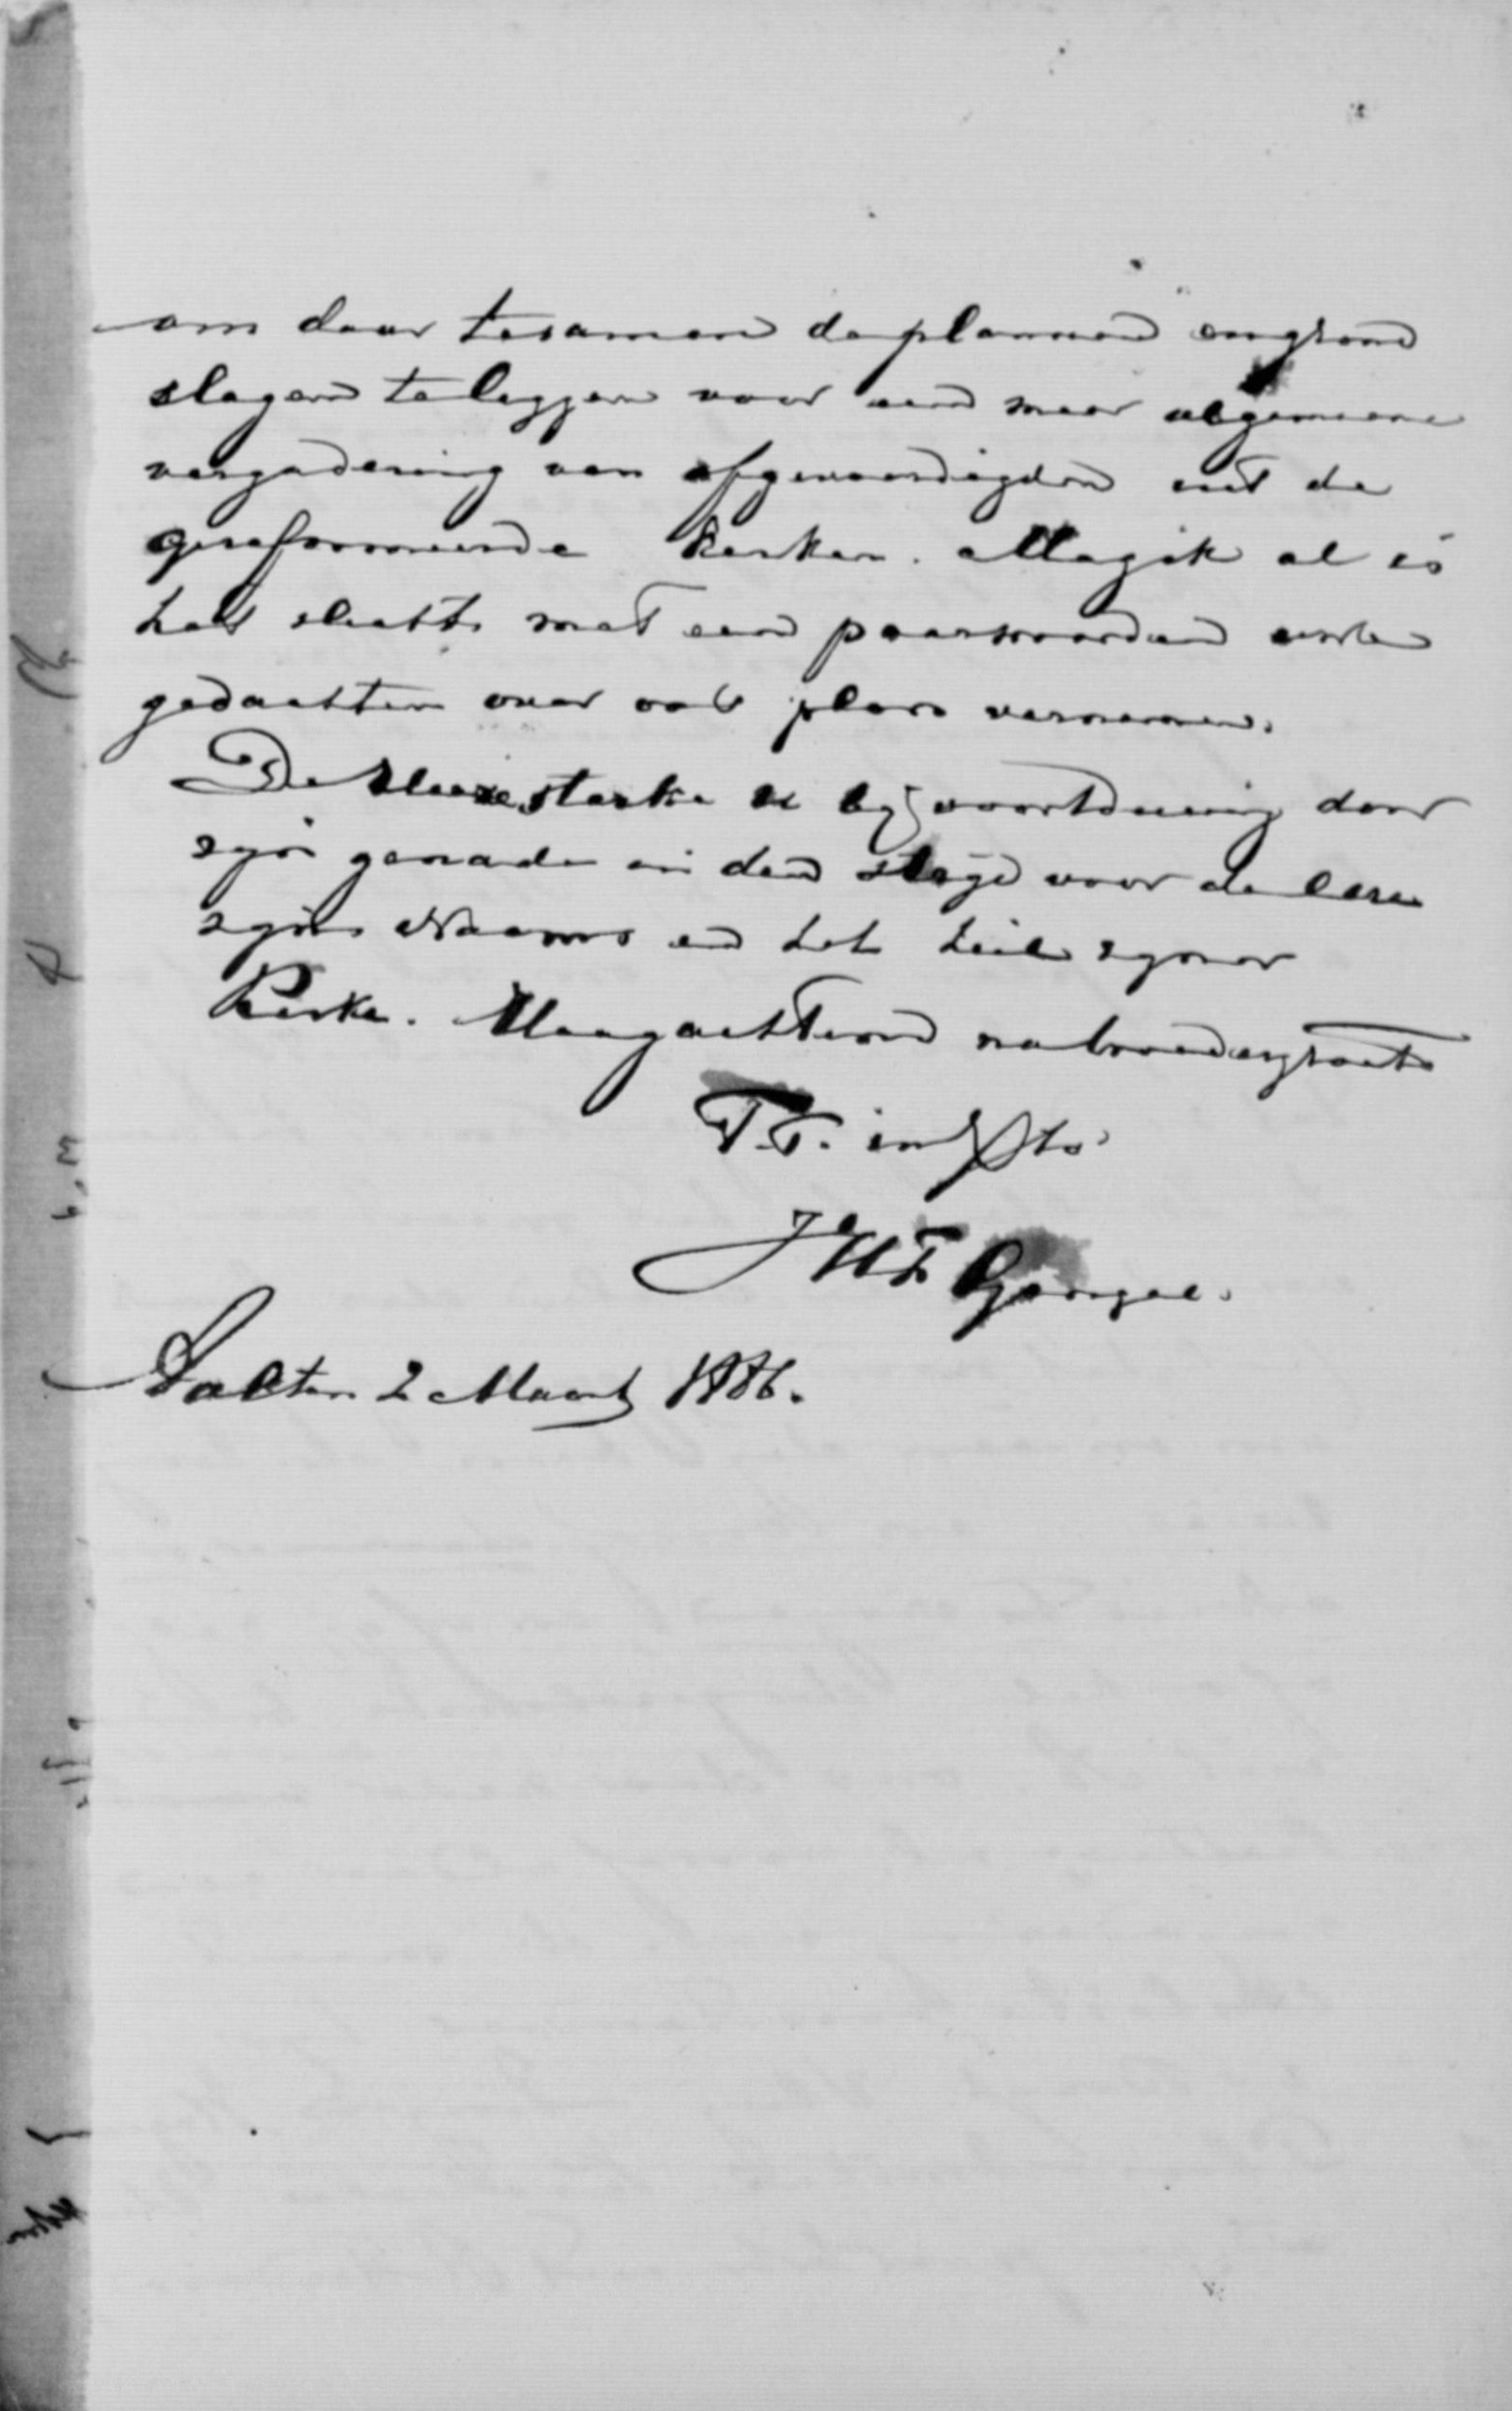 om daar tesamen de plannen en grond
slagen te leggen voor een meer algemeene
vergadering van afgevaardigden uit de
gereformeerde kerken. Mag ik al is
het slechts met een paar woorden uwe
gedachten over ook plan vernemen.
De Heere sterke U bij voortduring door
zijn genade in den strijd voor de eere
zijns Naams en het heil zijner
Kerke. Hoogachtend na broedergroete
T.T. in Xto
J H F Gangel.
Aalten 2 Maart 1886.